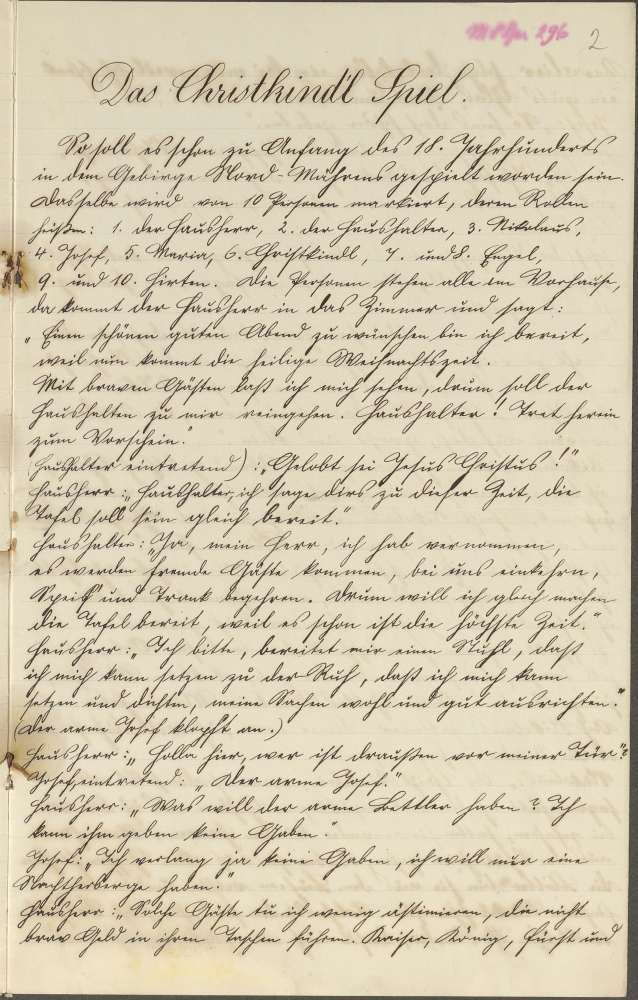 2
Das Christkind'l Spiel.
So soll es schon zu Anfang des 18. Jahrhunderts
in dem Gebirge Nord-Mährens gespielt worden sein.
Dasselbe wird von 10 Personen markiert, deren Rollen
heißen: 1. der Hausherr, 2. der Haushalter, 3. Nikolaus,
4. Josef, 5. Maria, 6. Christkindl, 7. und 8. Engel,
9. und 10. Hirten. Die Personen stehen alle im Vorhause,
da kommt der Hausherr in das Zimmer und sagt:
"Einen schönen guten Abend zu wünschen bin ich bereit,
weil nun kommt die heilige Weihnachtszeit.
Mit braven Gästen laß ich mich sehen, drum soll der
Haushalter zu mir reingehen. Haushalter! Tret herein
zum Vorschein."
(Haushalter eintretend): "Gelobt sei Jesus Christus!"
Hausherr: "Haushalter, ich sage dirs zu dieser Zeit, die
Tafel soll sein gleich bereit."
Haushalter: "Ja, mein Herr, ich hab vernommen,
es werden fremde Gäste kommen, bei uns einkehrn,
Speis und Trank begehren. Drum will ich gleich machen
die Tafel bereit, weil es schon ist die höchste Zeit."
Hausherr: "Ich bitte, bereitet mir einen Stuhl, daß
ich mich kann setzen zu der Ruh, daß ich mich kann
setzen und dichten, meine Sachen wohl und gut ausrichten."
(Der arme Josef klopft an.)
Hausherr: "Holla hier, wer ist draußen vor meiner Tür"?
Josef, eintretend: "Der arme Josef."
Hausherr: "Was will der arme Bettler haben? Ich
kann ihm geben keine Gaben."
Josef: "Ich verlang ja keine Gaben, ich will nur eine
Nachtherberge haben."
Hausherr: "Solche Gäste tu ich wenig ästimieren, die nicht
brav Geld in ihren Taschen führen. Kaiser, König, Fürst und